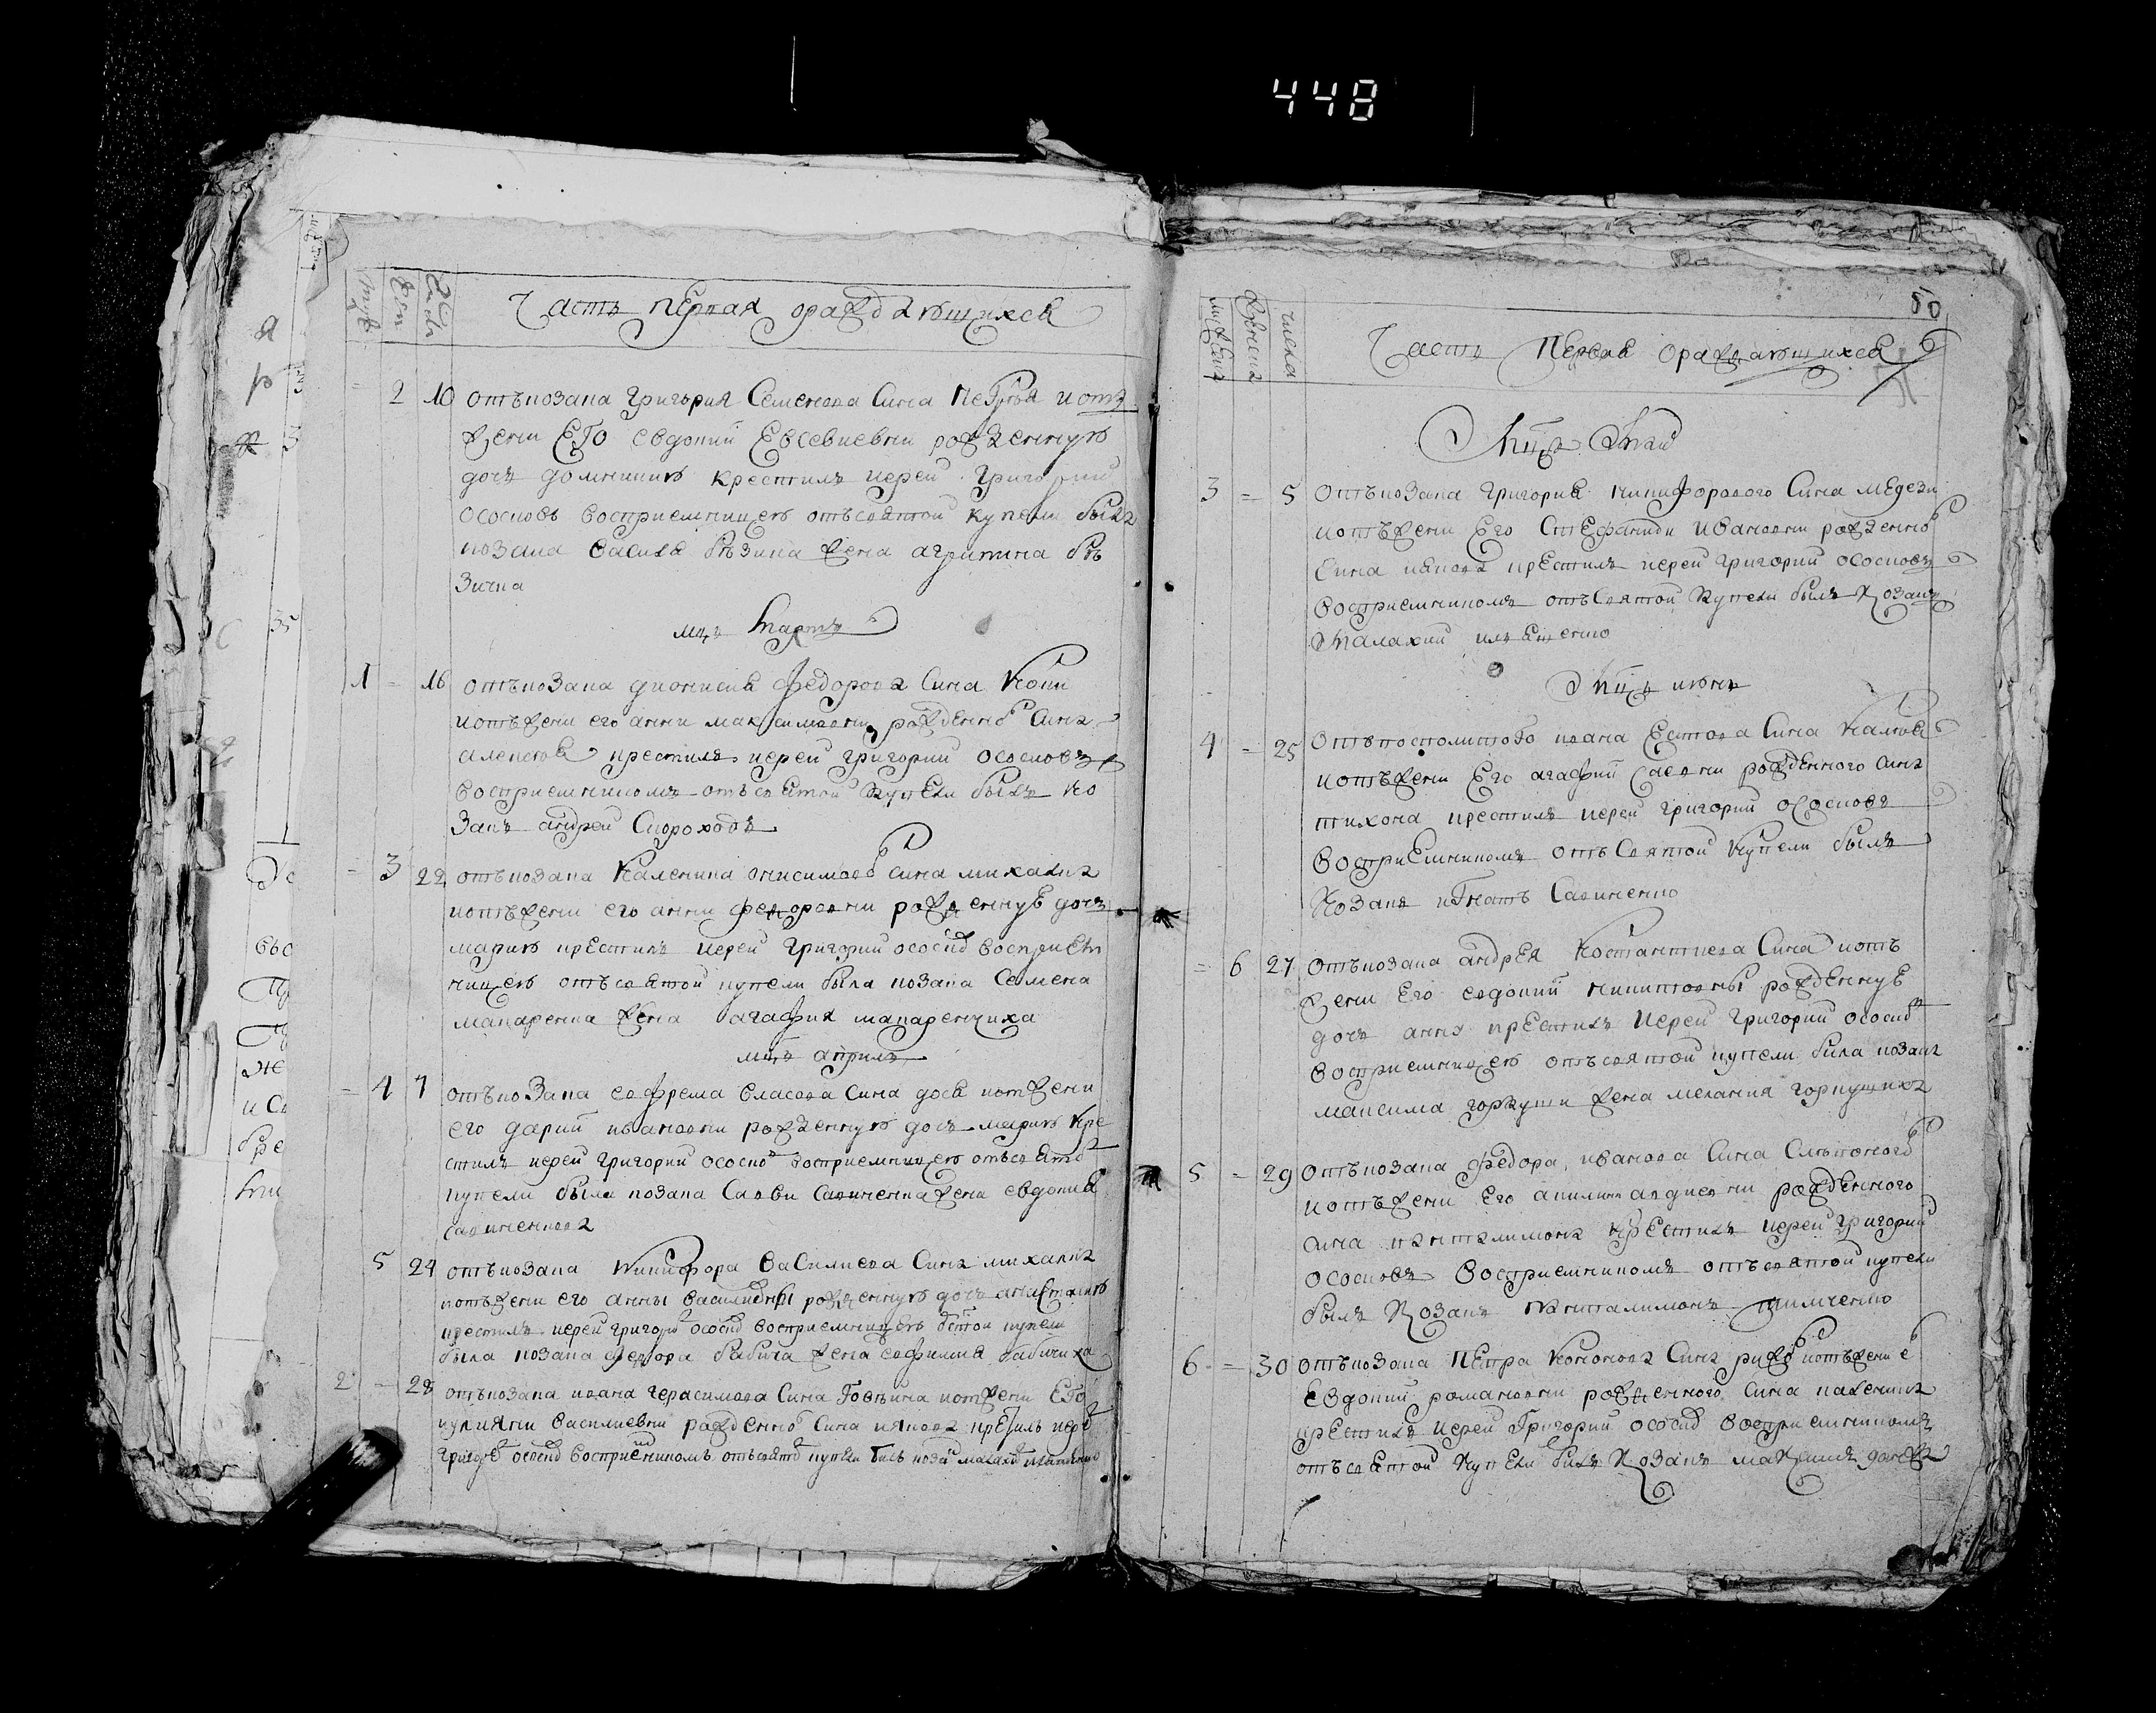 448
Часть первая ораждающихся
2 10 отъ козака Григория Семенова сина Петрѣя и отъ
жени его Евдокий Евсевиевни рожденную
дочъ Домникию крестилъ иерей Григорий
Ососковъ восприемницею отъ святой купели была
козака Василя жена Агрипина
мцъ Мартъ
1 = 16 отъ козака Дионисия Федорова сина
и отъ жени его Анни Максимовни рожденно сина
Алексея крестилъ иерей Григорий Ососковъ
восприемникомъ отъ святой купели былъ ко
закъ Андрей Скороходъ
= 3 22 отъ козака Каленика Онисимово сина Михалка
и отъ жени его Анни Федоровни рожденную дочъ
Марию крестилъ иерей Григорий Ососко восприем
ницею отъ святой купели была козака Семена
Макаренка жена Агафия Макаренчиха
мцъ Априль
= 4 7 отъ козака Ефрема Власова сина и отъ жени
его Дарий Ивановни рожденную дочъ Марию кре
стилъ иерей Григорий Ососко восприемницею отъ свято
купели была козака Савви Савиченка жена Евдокия
Савиченкова
5 24 отъ козака Никифора Василиева сина Михалка
и отъ жени его Анны рожденную дочъ Анастасию
крестилъ иерей Григори Ососко восприемницею купели
была козака Федора Бабича жена Евфимия Бабичиха
2 = 28 отъ козака Ивана Герасимова сина и отъ жени его
Иулияни Василиевни рожденно сина Иякова иере
Григоре Ососко восприемникомъ отъ свято купели билъ
50
Часть Первая ораждающихся
числа
Мцъ Май
3 = 5 отъ козака Григория Никифорового сина
и отъ жени его Стефаниди Ивановни рожденно
сина Иякова крестилъ иерей Григорий Ососковъ
восприемникомъ отъ святой купели былъ козакъ
Малахий
Мцъ июнь
4 = 25 отъ посполитого Ивана Естова сина
и отъ жени его Агафий Саввни рожденного сина
Тихона крестилъ иерей Григорий Ососковъ
восприемникомъ отъ святой купели былъ
козакъ Игнатъ Савиченко
= 6 27 отъ козака Андрея Костантиева сина и отъ
жени его Евдокий Никитовны рожденную
дочъ Анну крестилъ иерей Григорий Ососко
восприемницею отъ святой купели била козака
Максима Горкуши жена Мелания Горкушиха
5 = 29 отъ козака Федора Иванова сина
и отъ жени его Акилини Авдиевни рожденного
сина Пантелимона крестилъ иерей Григорий
Ососковъ восприемникомъ отъ святой купели
былъ козакъ Панталимонъ
6 = 30 отъ козака Петра Кононова сина и отъ жени е
Евдокий Романовни рожденного сина Каленика
крестилъ иерей Григорий Ососко восприемникомъ
отъ святой купели билъ козакъ Максимъ